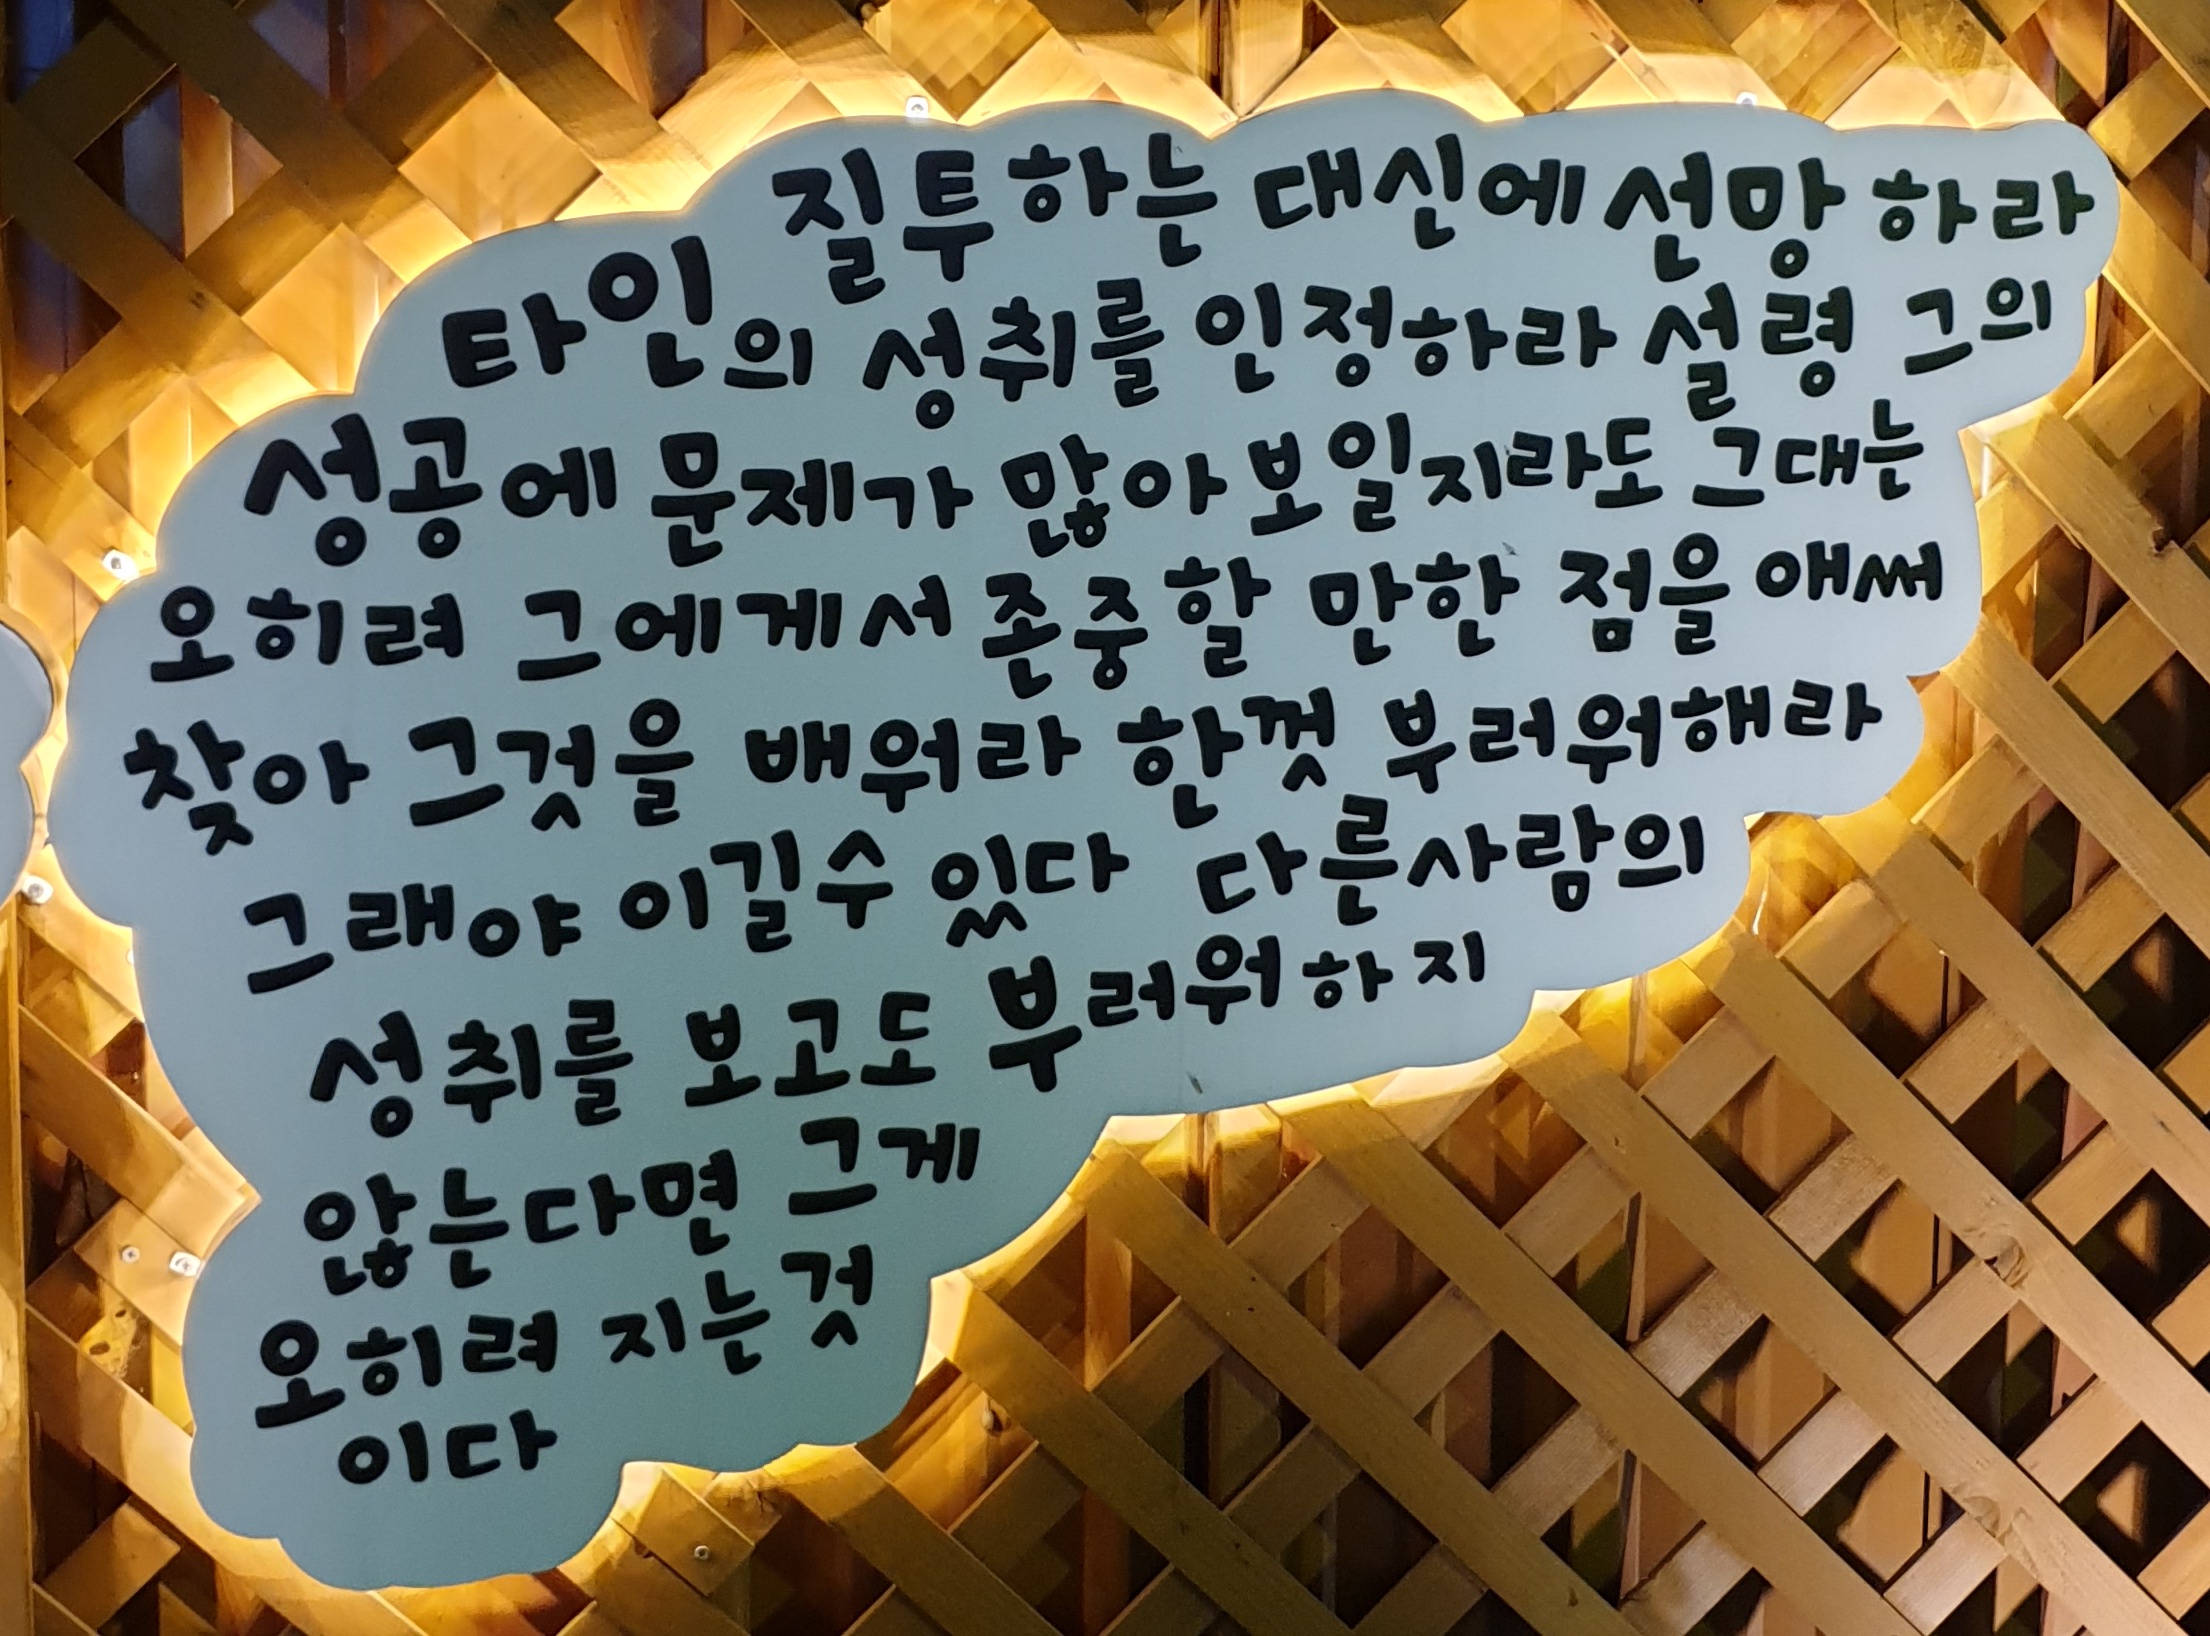 질투하는 대신에 선망 하라
타인의 성취를 인정하라 설령 그의
성공에 문제가 많아 보일지라도 그대는
오히려 그에게서 존중할 만한 점을 애써
찾아 그것을 배워라 한껏 부러워해라
그래야 이길수 있다 다른사람의
성취를 보고도 부러워하지
않는다면 그게
오히려 지는것
이다